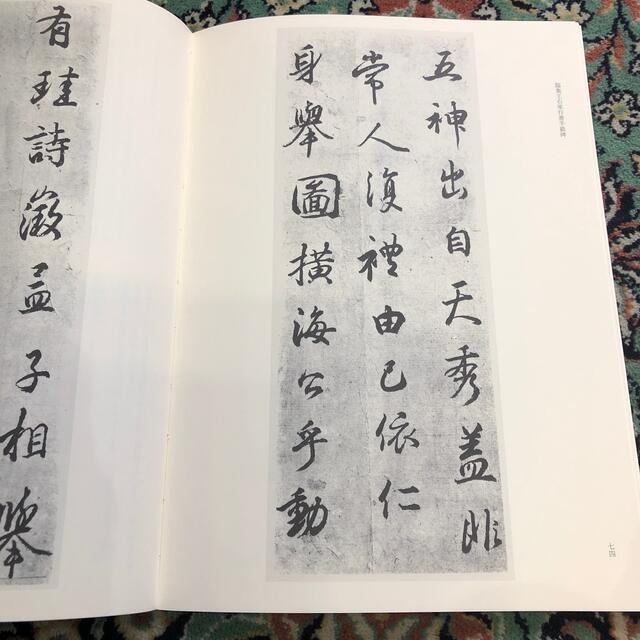 五神出自天秀蓋非
常人復禮由己依仁
身舉圖橫海公乎動
七四
有珪詩孟子相舉